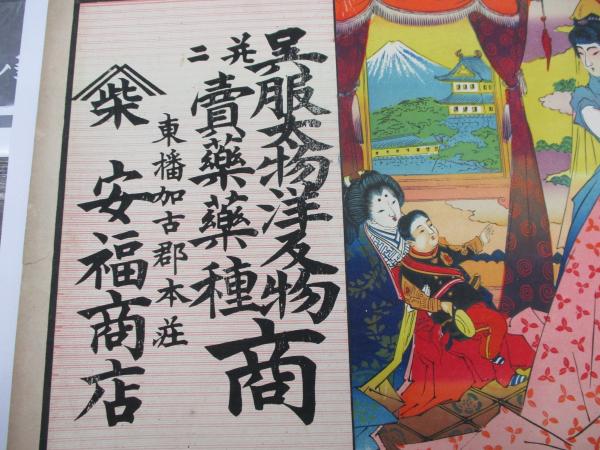 呉服太物洋反物商
并ニ賣藥藥種
東播加古郡本荘
柴
安福商店